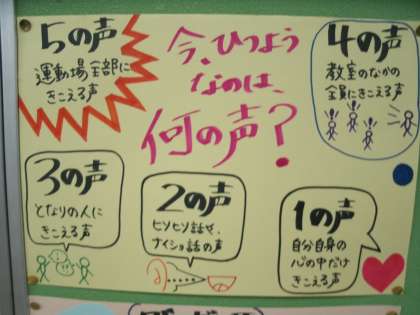 5の声
運動場全部に
きこえる声
今、ひつよう
なのは、
何の声?
4の声
教室のなかの
全員にきこえる声
3の声
となりの人に
きこえる声
2の声
ヒソヒソ話や、
ナイショ話の声
1の声
自分自身の
心の中だけ
きこえる声